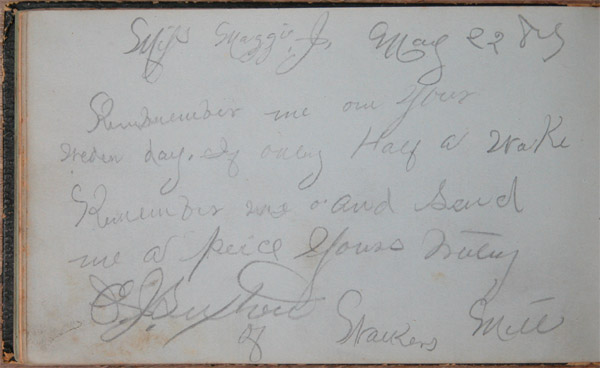 Miss Maggie J. May 22 89
Remember me on your
weden day. if only Half a wake
Remember me and Send
me a peice Yours truly
E. J.
of Walkers Mill